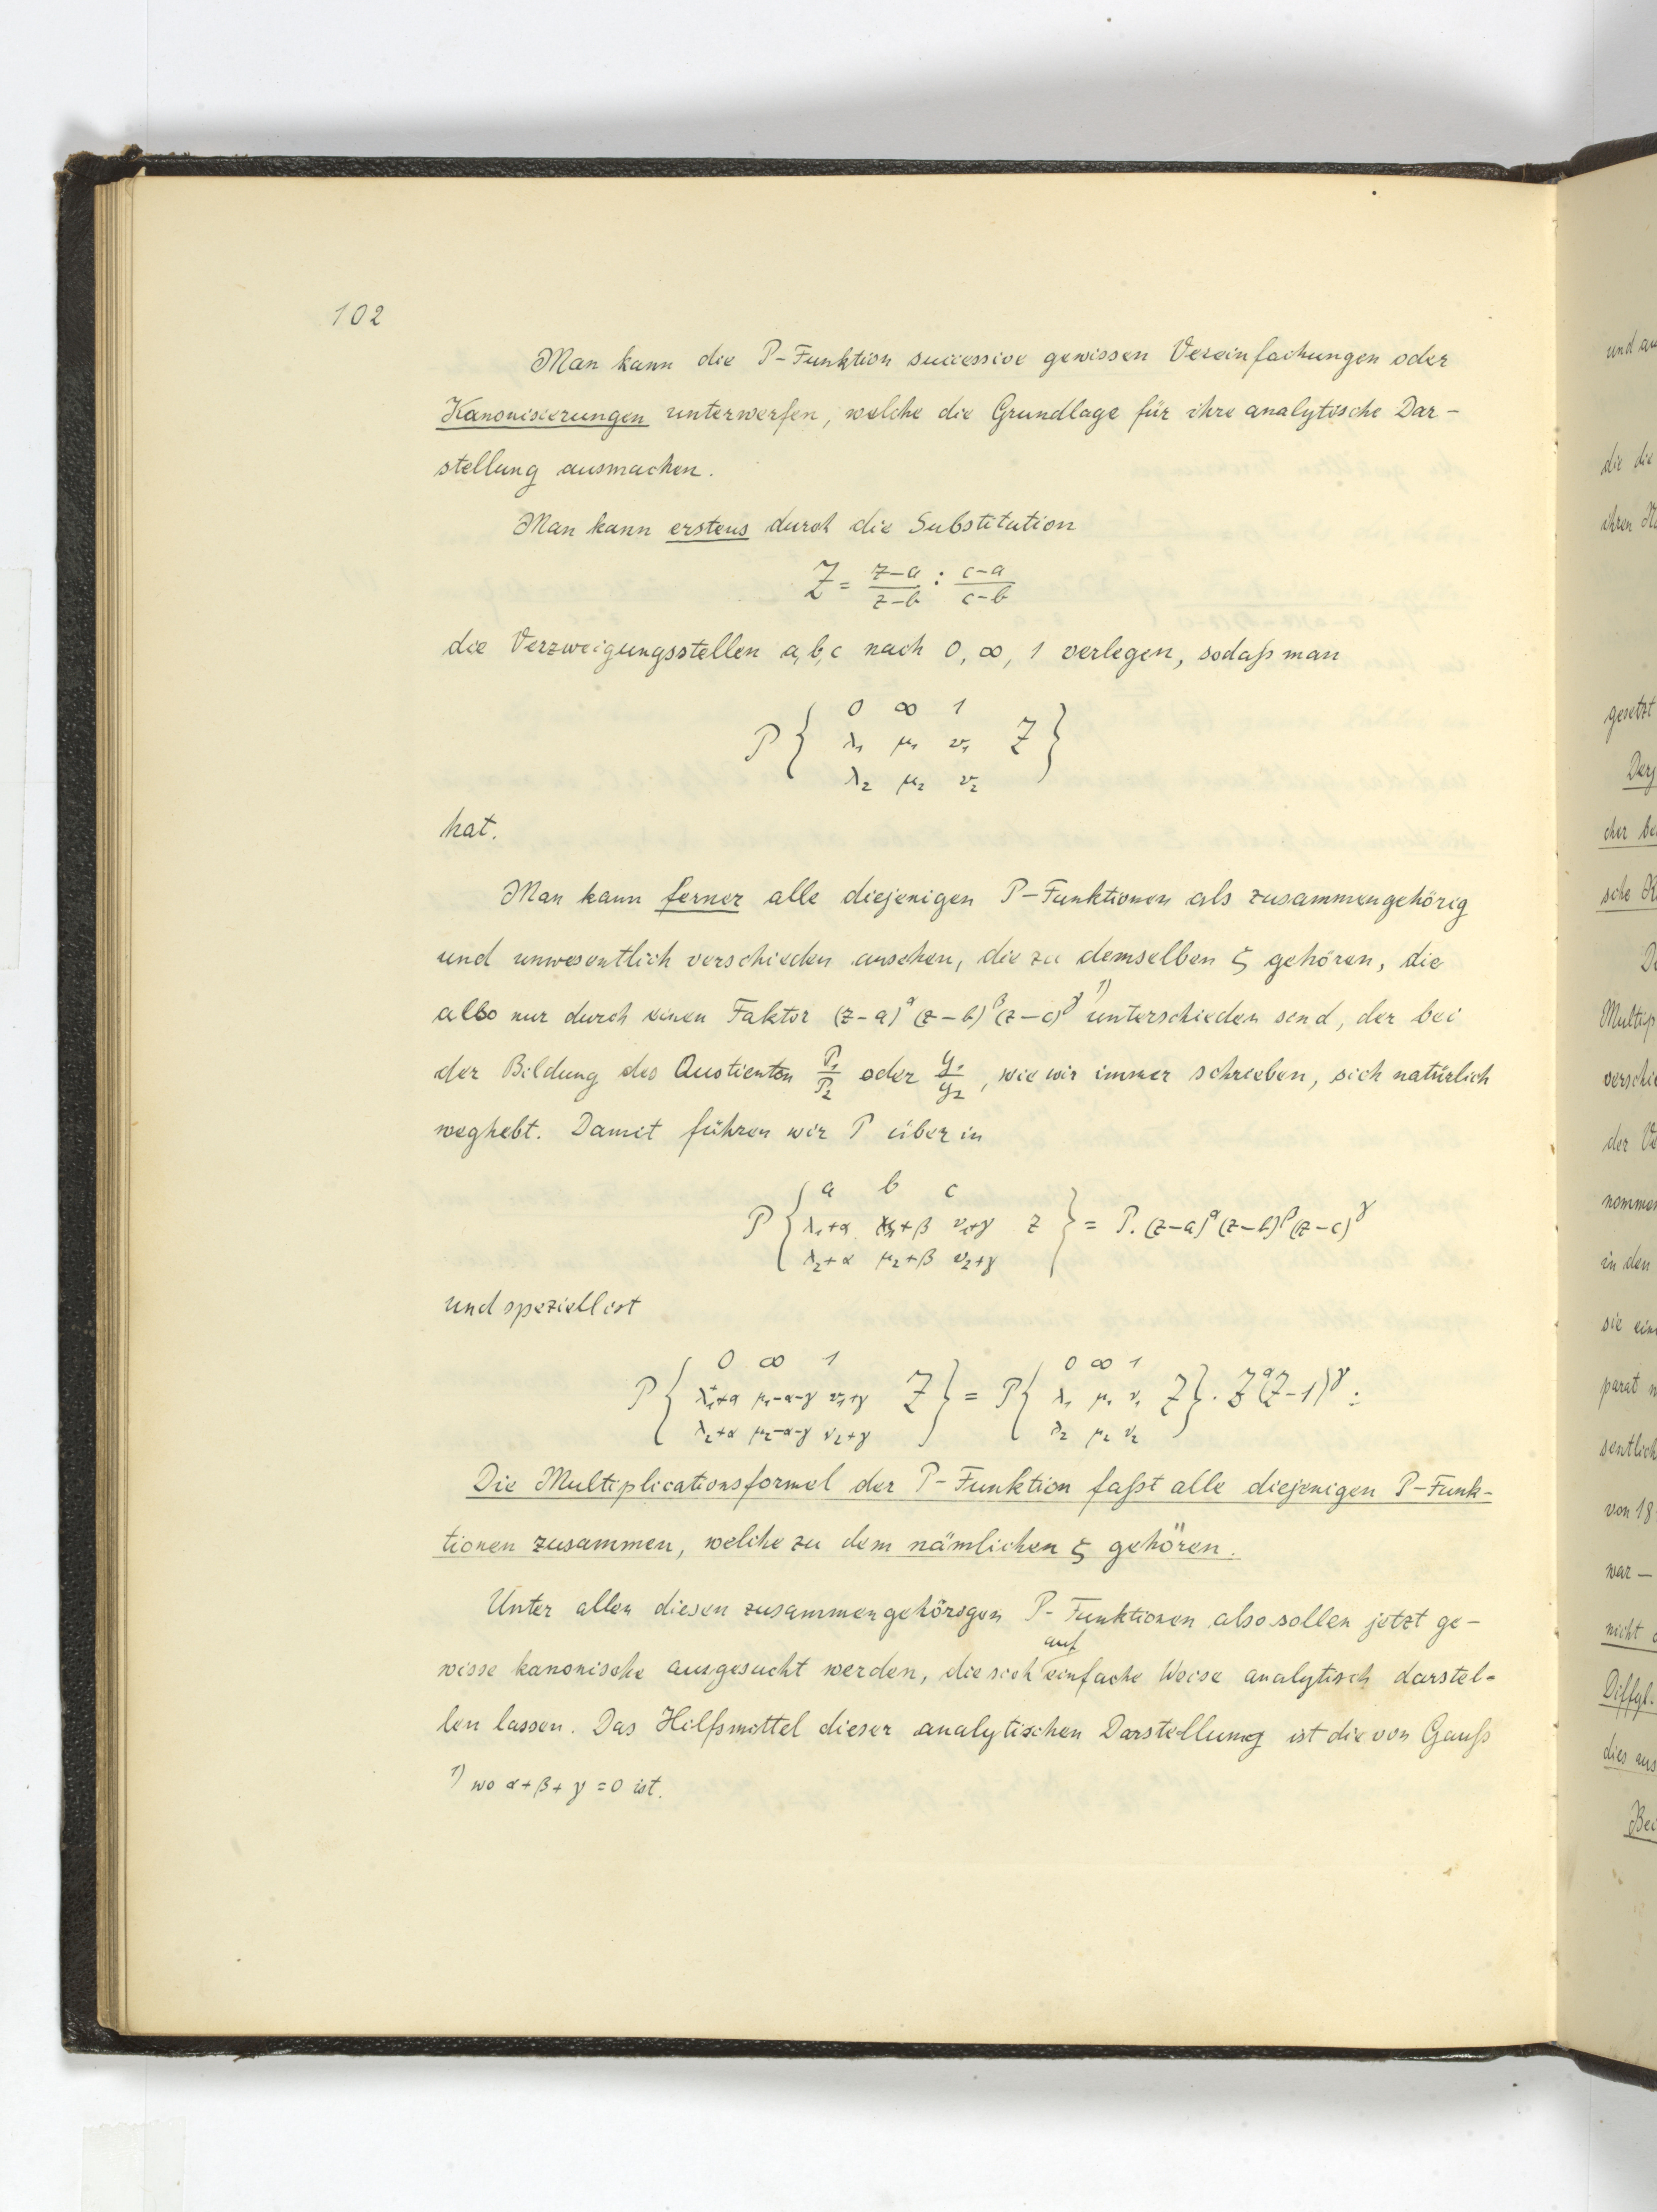 102
Man kann die P-Funktion successive gewissen Vereinfachungen oder
Kanonisierungen unterwerfen, welche die Grundlage für ihre analytische Dar-
stellung ausmachen.
Man kann erstens durch die Substitution
Z = \frac{z-a}{z-b} : \frac{c-a}{c-b}
die Verzweigungsstellen a, b, c nach 0, ∞, 1 verlegen, sodaß man
0 ∞ 1
P { λ₁ μ₁ ν₁ Z }
λ₂ μ₂ ν₂
hat.
Man kann ferner alle diejenigen P-Funktionen als zusammengehörig
und unwesentlich verschieden ansehen, die zu demselben ζ gehören, die
also nur durch einen Faktor (z-a)^α (z-b)^β (z-c)^γ ¹⁾ unterschieden sind, der bei
der Bildung des Quotienten \frac{P₁}{P₂} oder \frac{y₁}{y₂}, wie wir immer schrieben, sich natürlich
weghebt. Damit führen wir P über in
a b c
P { λ₁+α μ₁+β ν₁+γ z } = P. (z-a)^α (z-b)^β (z-c)^γ
λ₂+α μ₂+β ν₂+γ
und speziell ist
0 ∞ 1 0 ∞ 1
P { λ₁+α μ₁-α-γ ν₁+γ Z } = P { λ₁ μ₁ ν₁ Z } . Z^α (Z-1)^γ :
λ₂+α μ₂-α-γ ν₂+γ λ₂ μ₂ ν₂
Die Multiplicationsformel der P-Funktion faßt alle diejenigen P-Funk-
tionen zusammen, welche zu dem nämlichen ζ gehören.
Unter allen diesen zusammengehörigen P-Funktionen also sollen jetzt ge-
wisse kanonische ausgesucht werden, die sich auf einfache Weise analytisch darstel-
len lassen. Das Hilfsmittel dieser analytischen Darstellung ist die von Gauß
¹⁾ wo α+β+γ=0 ist.
und
die die
ihren
gesetzt
der
sche
verschie
der
nommen
in den
sie ein
parat
sentlich
von 18
war —
nicht
Diffgl.
dies
Bei